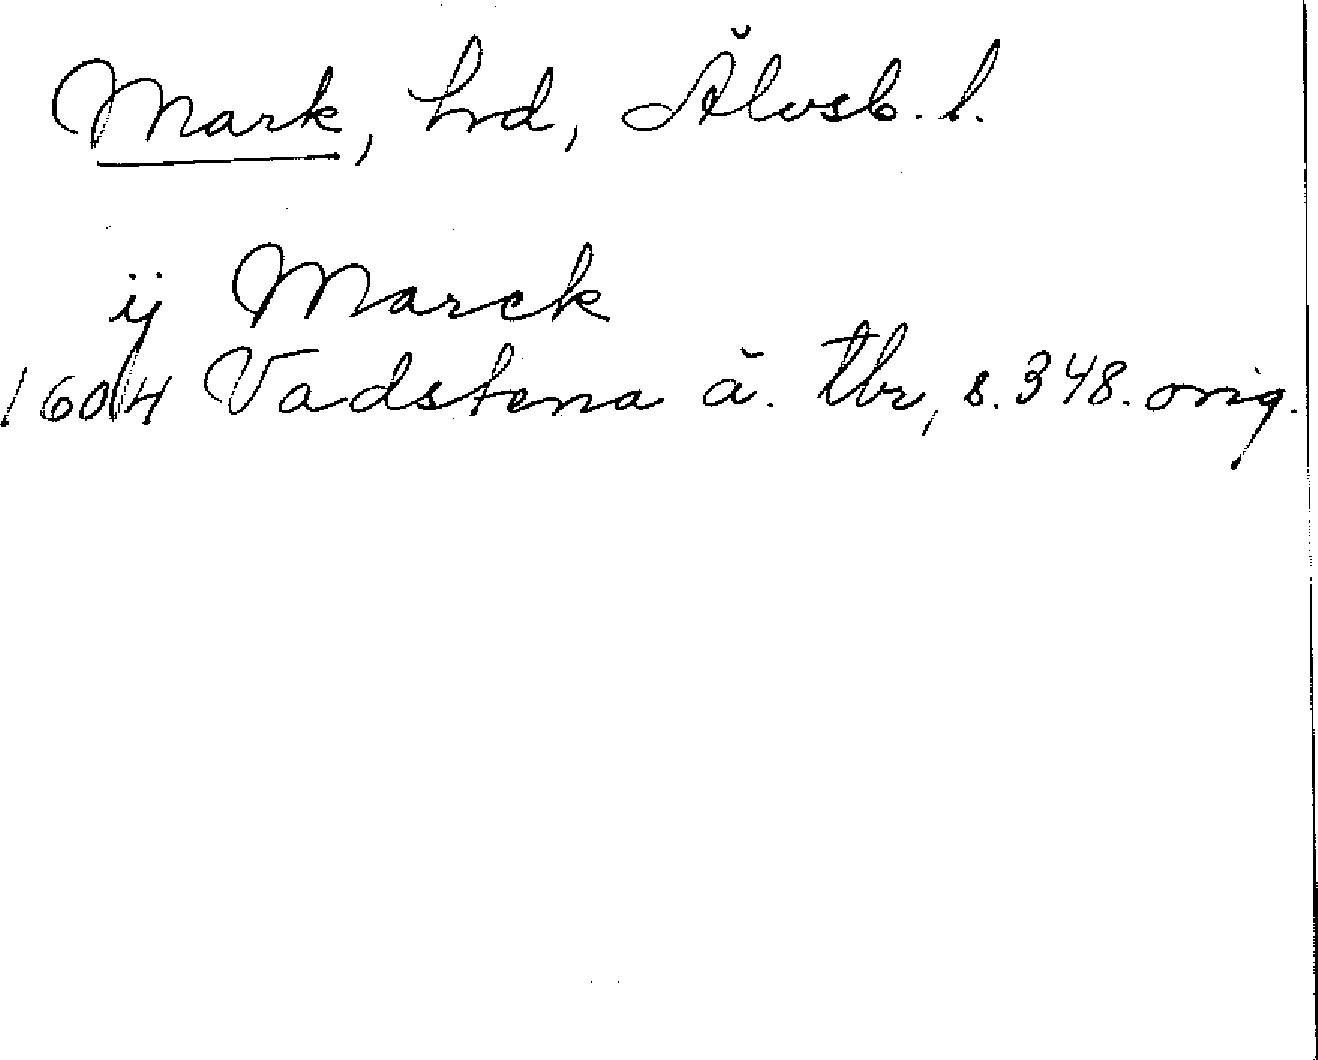 Mark, hrd, Älvsb. l.
ij Marck
1604 Vadstena ä. tbr, s. 348. orig.